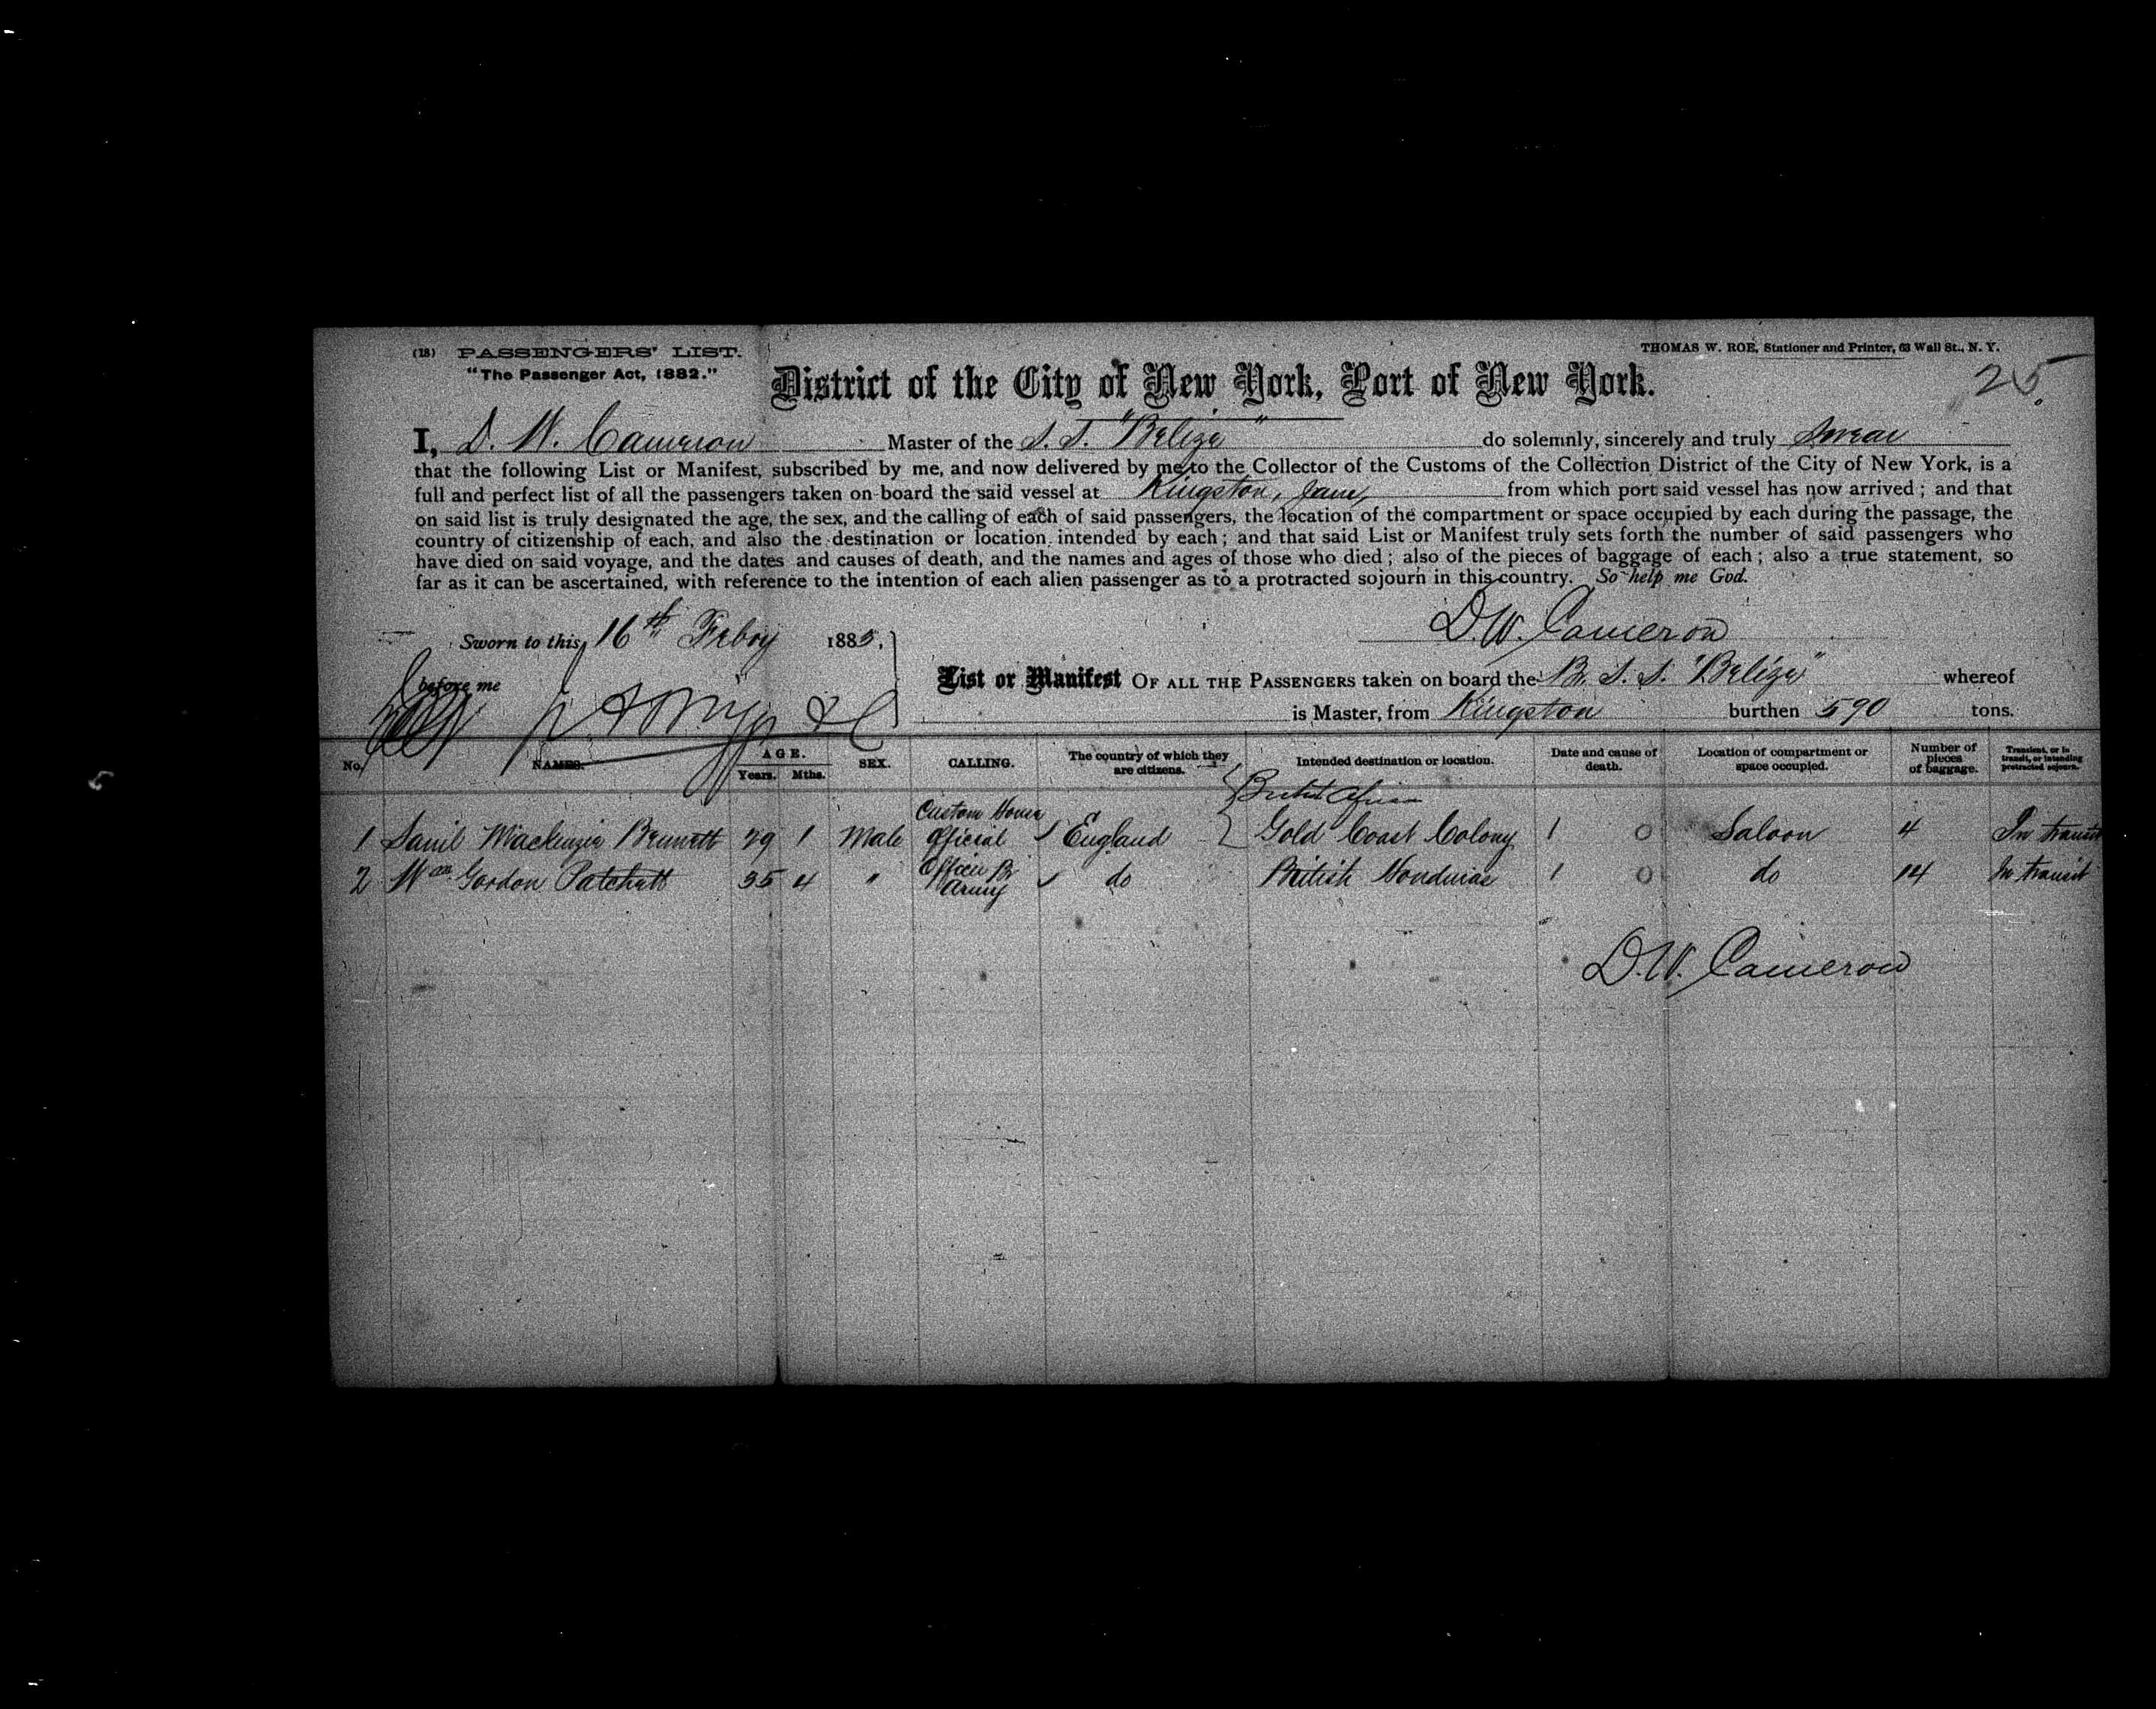 (18) PASSENGERS' LIST.
THOMAS W. ROE, Stationer and Printer, 63 Wall St., N. Y.
"The Passenger Act, 1882."
District of the City of New York, Port of New York.
25
I, D. W. Cameron Master of the S. S. "Belize" do solemnly, sincerely and truly Swear
that the following List or Manifest, subscribed by me, and now delivered by me to the Collector of the Customs of the Collection District of the City of New York, is a
full and perfect list of all the passengers taken on board the said vessel at Kingston, Jam, from which port said vessel has now arrived; and that
on said list is truly designated the age, the sex, and the calling of each of said passengers, the location of the compartment or space occupied by each during the passage, the
country of citizenship of each, and also the destination or location intended by each; and that said List or Manifest truly sets forth the number of said passengers who
have died on said voyage, and the dates and causes of death, and the names and ages of those who died; also of the pieces of baggage of each; also a true statement, so
far as it can be ascertained, with reference to the intention of each alien passenger as to a protracted sojourn in this country. So help me God.
Sworn to this 16th Febry 1885,
D. W. Cameron
before me
List or Manifest OF ALL THE PASSENGERS taken on board the Br. S. S. "Belize" whereof
is Master, from Kingston burthen 590 tons.
No. NAMES. AGE. Years. Mths. SEX. CALLING. The country of which they are citizens. Intended destination or location. Date and cause of death. Location of compartment or space occupied. Number of pieces of baggage. Transient, or in transit, or intending protracted sojourn.
1 Mackenzie Bennett 29 1 Male Custom House Official England Gold Coast Colony 1 0 Saloon 4 In transit
2 Wm Gordon Patchett 35 4 " Officer Br Army do British Honduras 1 0 do 14 In transit
D. W. Cameron